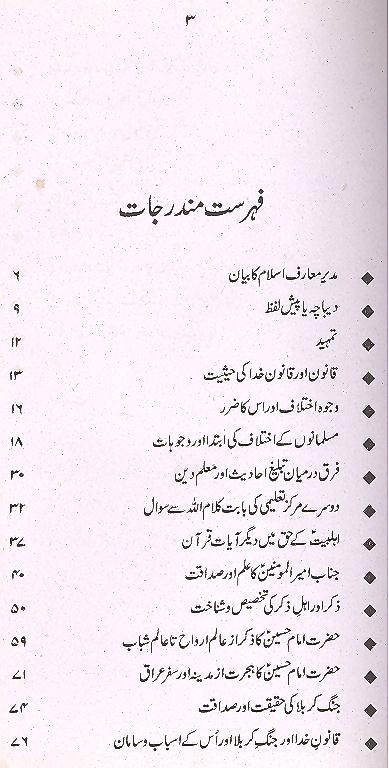 ۳
فہرست مندرجات
◆ مدیر معارف اسلام کا بیان ۶
◆ دیباچہ یا پیش لفظ ۹
◆ تمہید ۱۲
◆ قانون اور قانون خدا کی حیثیت ۱۳
◆ وجوہ اختلاف اور اس کا ضرر ۱۶
◆ مسلمانوں کے اختلاف کی ابتدا اور وجوہات ۱۸
◆ فرق درمیان تبلیغ احادیث اور معلم دین ۳۰
◆ دوسرے مرکز تعلیمی کی بابت کلام اللہ سے سوال ۳۲
◆ اہلبیتؑ کے حق میں دیگر آیات قرآن ۳۷
◆ جناب امیر المومنینؑ کا علم اور صداقت ۴۰
◆ ذکر اور اہل ذکر کی تخصیص و شناخت ۵۰
◆ حضرت امام حسینؑ کا ذکر از عالم ارواح تا عالم شباب ۵۹
◆ حضرت امام حسینؑ کا ہجرت از مدینہ اور سفر عراق ۷۱
◆ جنگ کربلا کی حقیقت اور صداقت ۷۴
◆ قانون خدا اور جنگِ کربلا اور اُس کے اسباب و سامان ۷۶